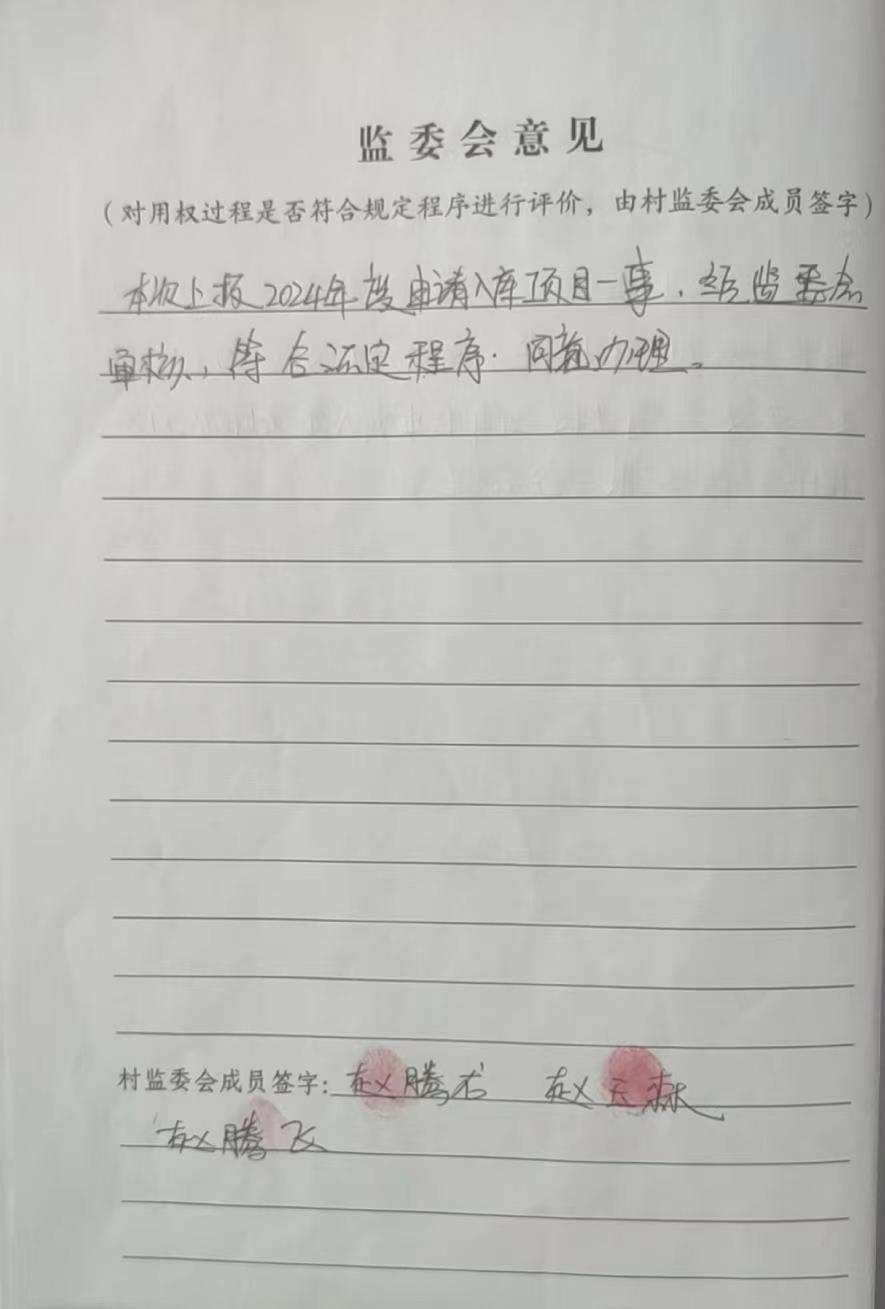 监委会意见
（对用权过程是否符合规定程序进行评价，由村监委会成员签字）
本次上报2024年度申请入库项目一事，经监委会
审核，符合法定程序．同意办理。
村监委会成员签字：赵腾 赵玉森
赵腾飞